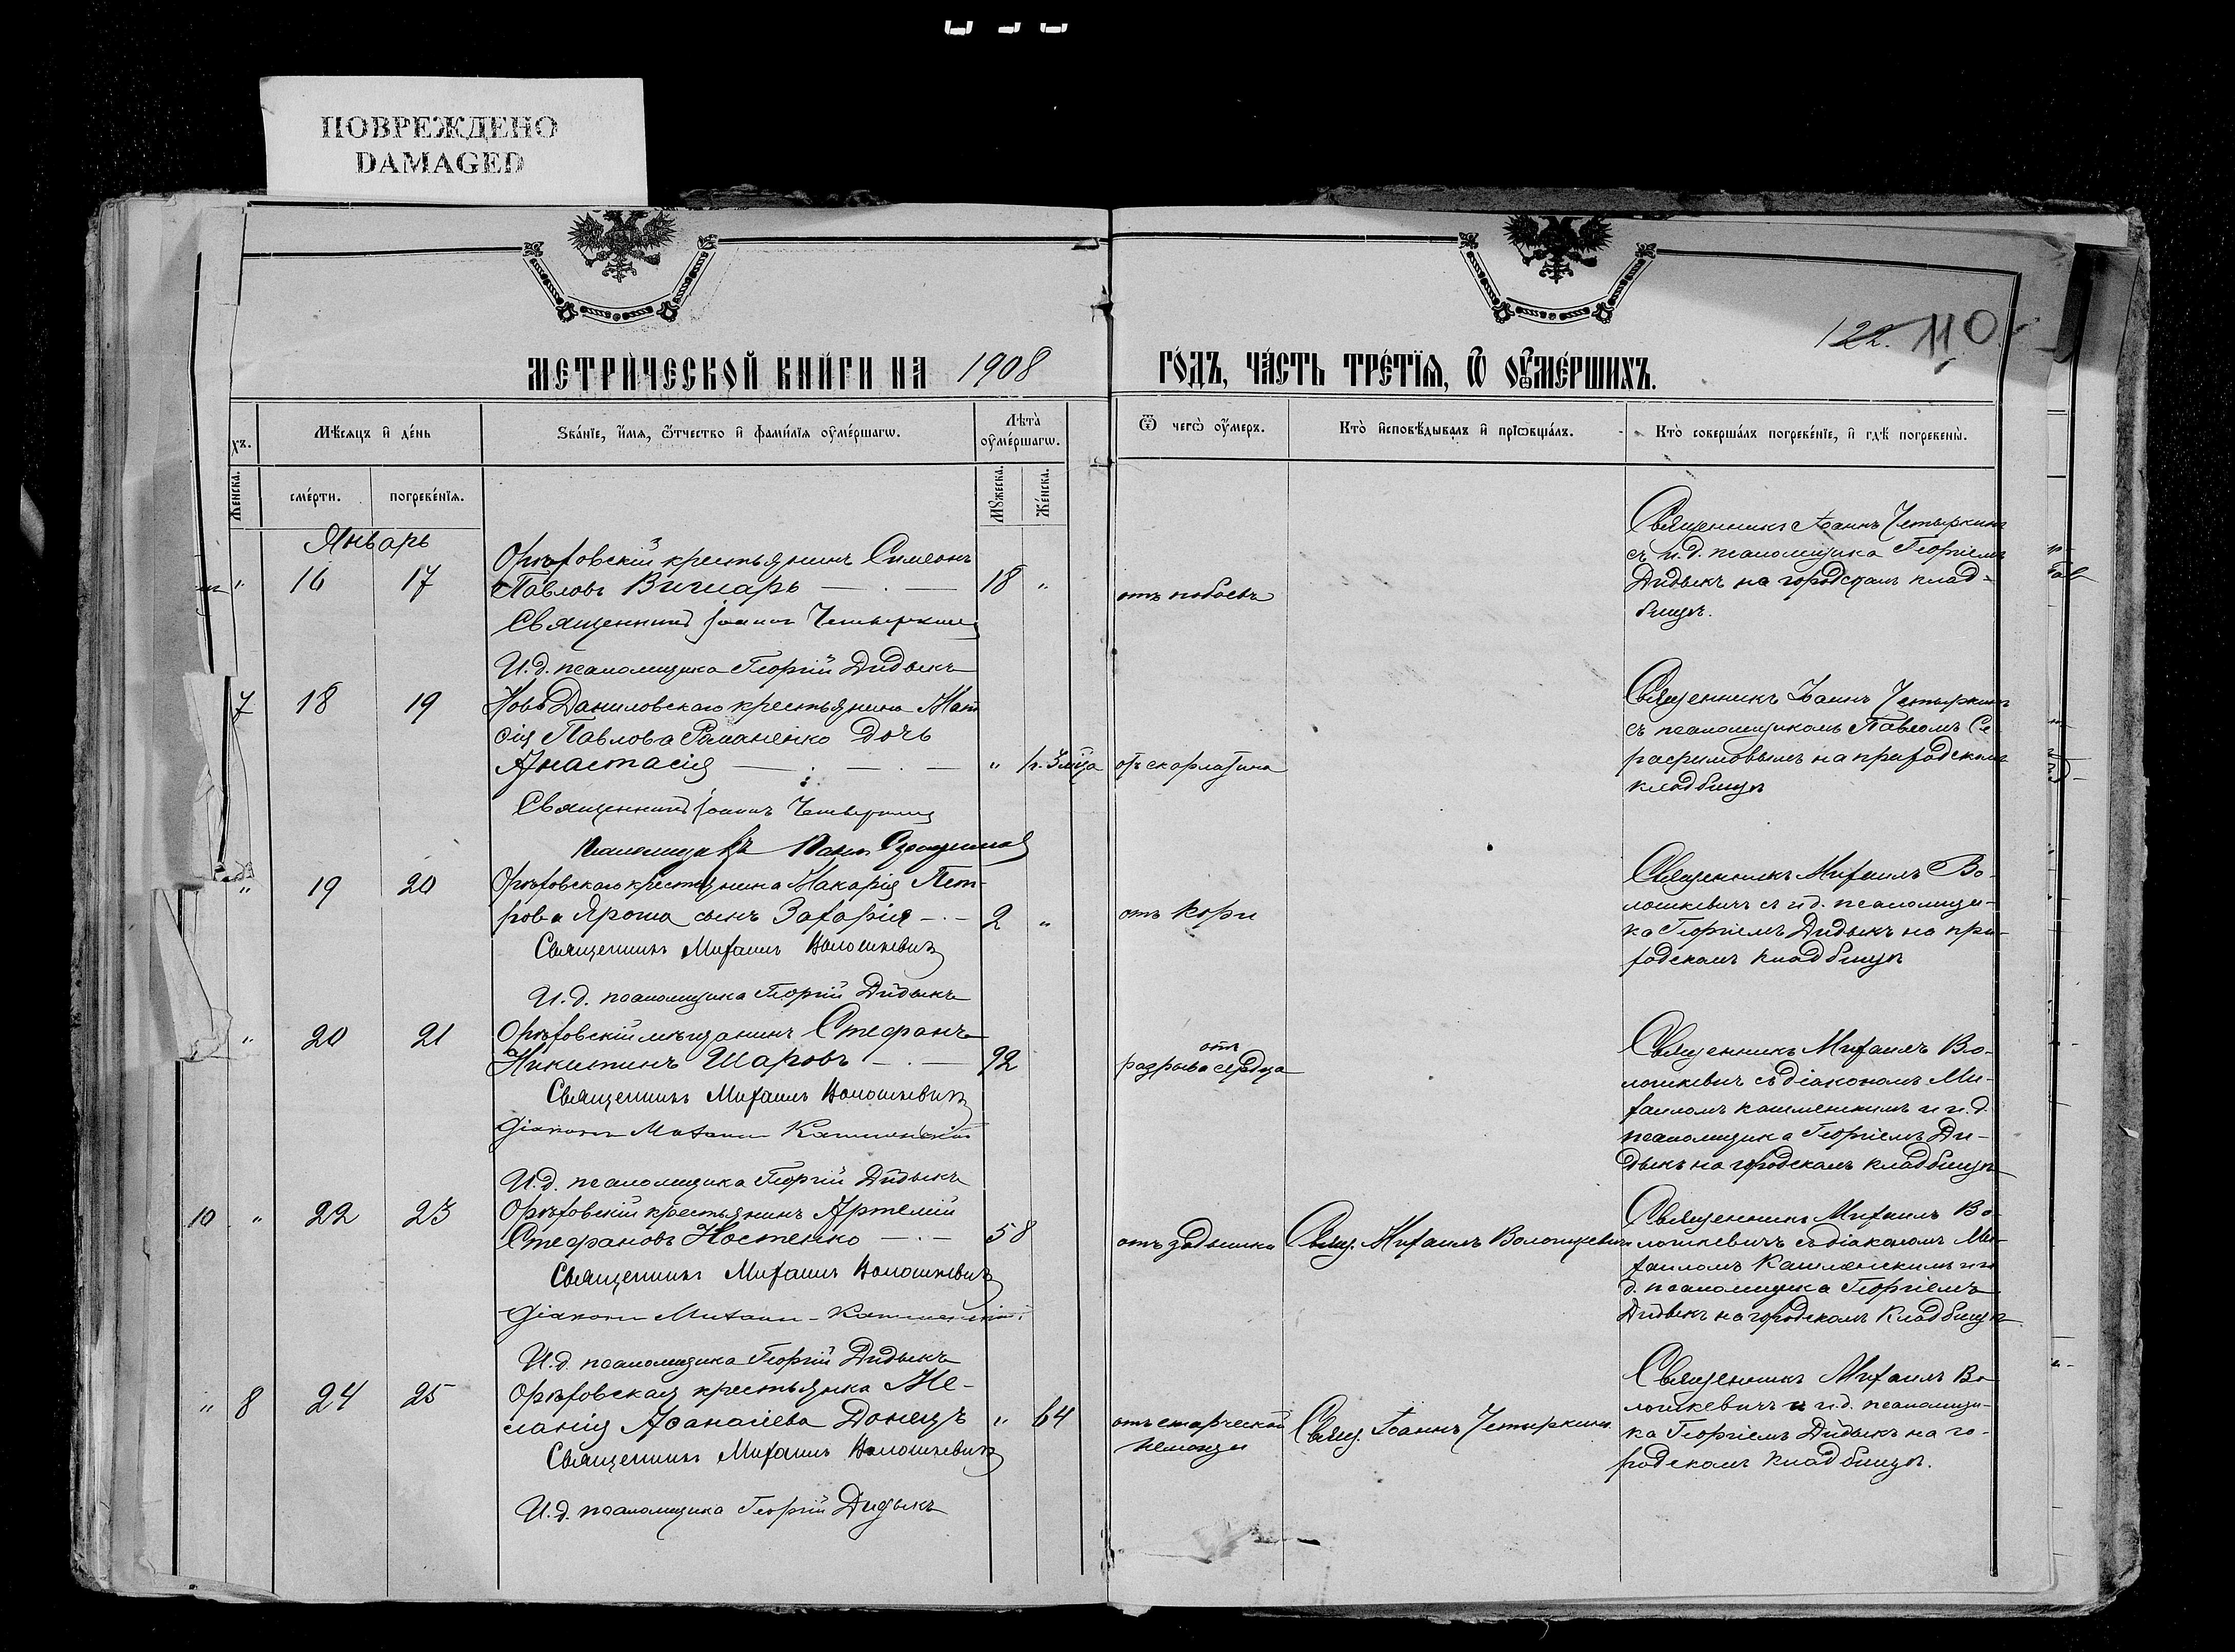 ПОВРЕЖДЕНО
DAMAGED
122. 110.
МЕТРИ́ЧЕСКОЙ КНИ́ГИ НА 1908
ГО́ДЪ, ЧА́СТЬ ТРЕ́ТЇѦ, Ѡ ОУМЕ́РШИХЪ.
хъ.
Мѣ́сѧцъ и де́нь
Ѕва́нїе, и́мѧ, ѻ́тчество и фами́лїѧ оуме́ршагѡ.
Лѣта̀ оуме́ршагѡ.
Ѿ чегѡ̀ оу́меръ.
Кто̀ исповѣ́дывалъ и прїѡбща́лъ.
Кто̀ соверша́лъ погребе́нїе, и гдѣ̀ погребены̀.
Же́нска.
сме́рти.
погребе́нїѧ.
Мꙋ́жеска.
Же́нска.
Январь
" 16 17
Орѣховскій крестьянинъ Симеонъ
Павловъ Вигларь 18 "
Священникъ Іоаннъ Четыркинъ
И. д. псаломщика Георгій Дидыкъ
отъ побоевъ
Священникъ Іоаннъ Четыркинъ
съ и. д. псаломщика Георгіемъ
Дидыкъ на городскомъ клад-
бищѣ.
7 18 19
Ново Даниловскаго крестьянина Мат
ѳія Павлова Романенко дочь
Анастасія " 1 г. 3 м‑ца
Священникъ Іоаннъ Четыркинъ
Псаломщикъ
отъ скарлатина
Священникъ Іоаннъ Четыркинъ
съ псаломщикомъ Павломъ Се
рафимовымъ на приходскомъ
кладбищѣ
" 19 20
Орѣховскаго крестьянина Макарія Пет-
рова Яроша сынъ Захарія 2 "
Священникъ Михаилъ Волошкевичъ
И. д. псаломщика Георгій Дидыкъ
отъ кори
Священникъ Михаилъ Во-
лошкевичъ съ и д. псаломщи-
ка Георгіемъ Дидыкъ на при-
ходскомъ кладбищѣ
" 20 21
Орѣховскій мѣщанинъ Стефанъ
Никитинъ Шаровъ 92
Священникъ Михаилъ Волошкевичъ
Діаконъ Михаилъ Кашменскій
И. д. псаломщика Георгій Дидыкъ
отъ
разрыва сердца
Священникъ Михаилъ Во-
лошкевич съ діакономъ Ми-
хаиломъ Кашменскимъ и и. д.
псаломщика Георгіемъ Ди-
дыкъ на городскомъ кладбищѣ
10 " 22 23
Орѣховскій крестьянинъ Артемій
Стефановъ Костенко 58
Священникъ Михаилъ Волошкевичъ
Діаконъ Михаилъ Кашменскій
И. д. псаломщика Георгій Дидыкъ
отъ задышки
Свящ. Михаилъ Волошкевичъ
Священникъ Михаилъ Во-
лошкевичъ съ діакономъ Ми-
хаиломъ Кашменскимъ и и
д. псаломщика Георгіемъ
Дидыкъ на городскомъ кладбищѣ
" 8 24 25
Орѣховская крестьянка Ме-
ланія Аѳанасіева Донецъ " 64
Священникъ Михаилъ Волошкевичъ
И. д. псаломщика Георгій Дидыкъ
отъ старческой
немощи
Свящ. Іоаннъ Четыркинъ
Священникъ Михаилъ Во
лошкевичъ и и. д. псаломщи-
ка Георгіемъ Дидыкъ на го-
родскомъ кладбищѣ.